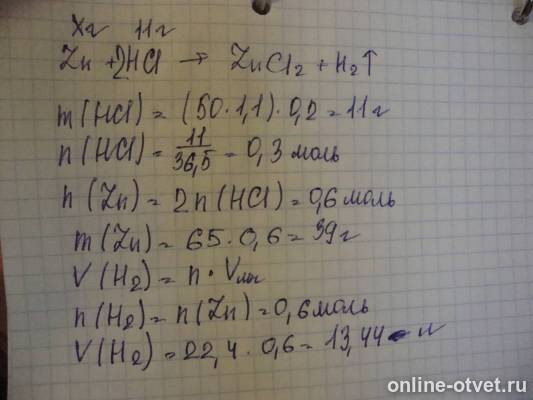 Xг 11г
Zn + 2HCl → ZnCl₂ + H₂↑
m(HCl) = (50·1,1)·0,2 = 11г
n(HCl) = 11/36,5 = 0,3 моль
n(Zn) = 2n(HCl) = 0,6 моль
m(Zn) = 65·0,6 = 39г
V(H₂) = n·Vм
n(H₂) = n(Zn) = 0,6 моль
V(H₂) = 22,4·0,6 = 13,44 л
online-otvet.ru